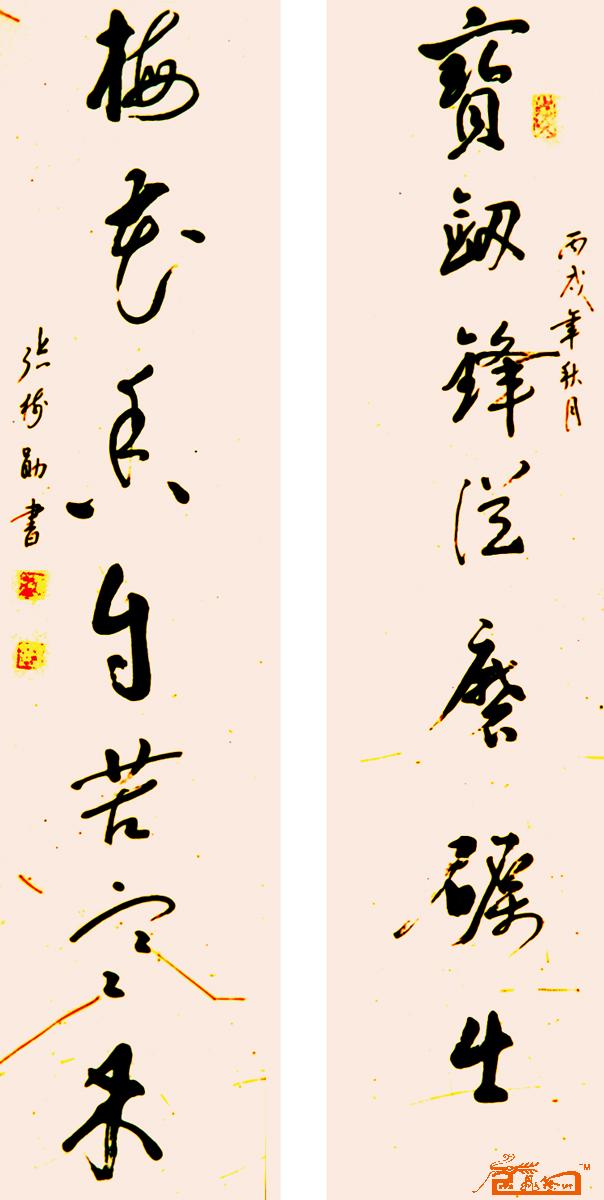 丙戌年秋月
寶劒鋒從磨礪生
梅花香自苦寒來
張樹勛書